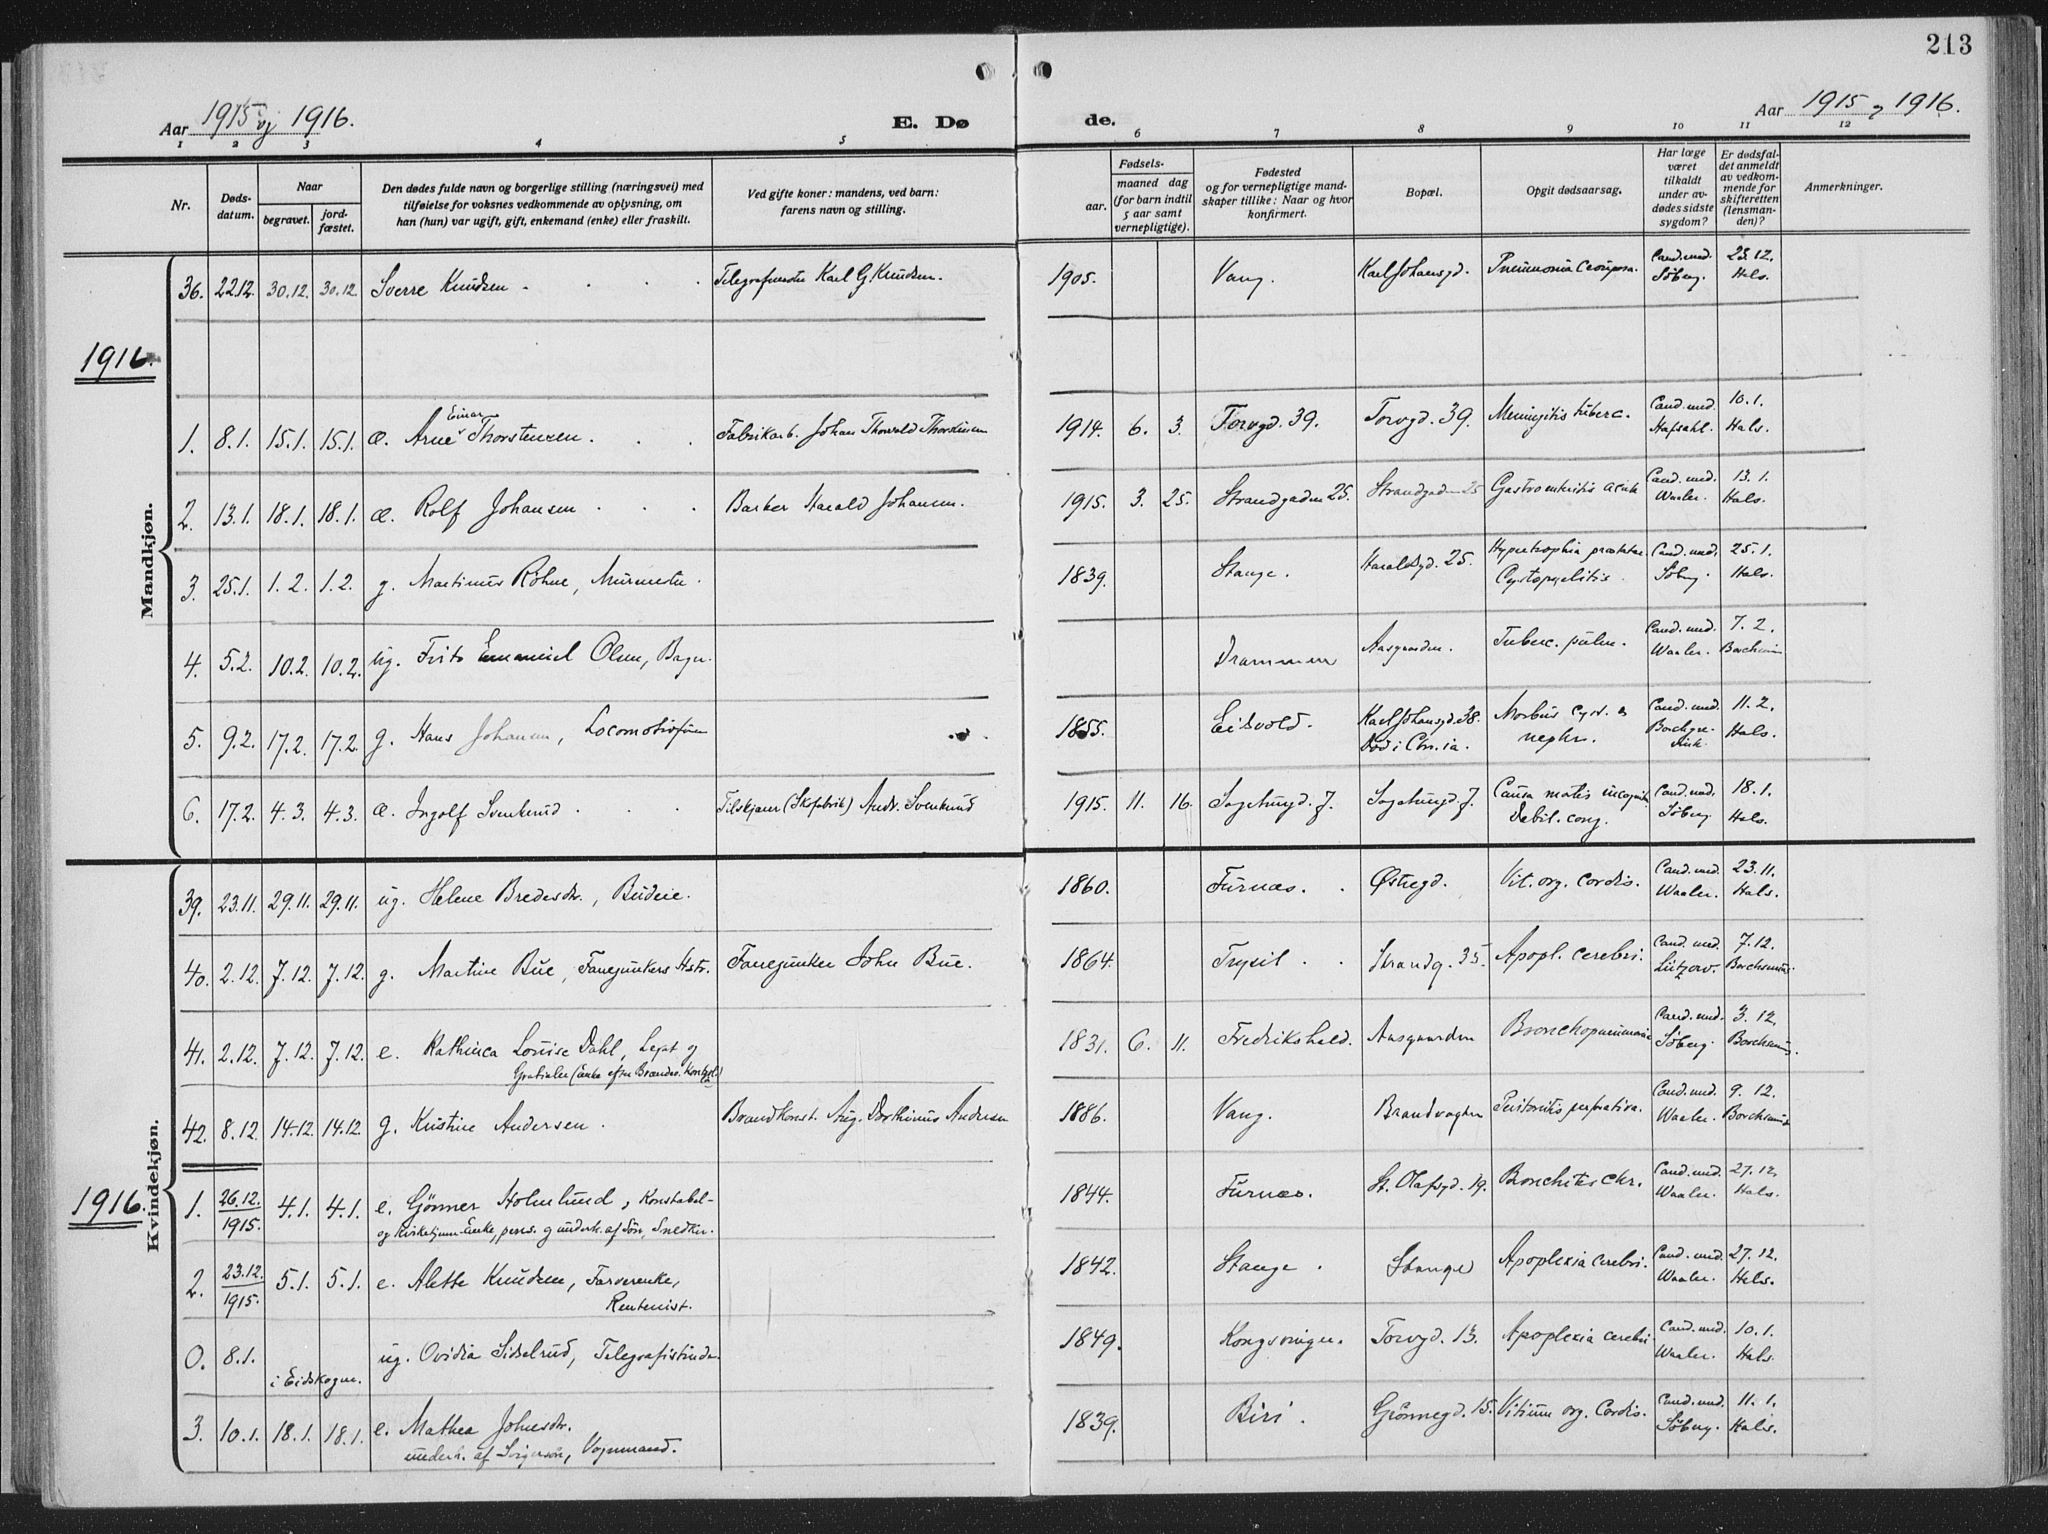 213
Aar 1915 og 1916.
E. Dø
de.
Aar 1915 og 1916.
1 2 3 4 5 6 7 8 9 10 11 12
Nr.
Døds-
datum.
Naar
begravet.
jord-
fæstet.
Den dødes fulde navn og borgerlige stilling (næringsvei) med
tilføielse for voksnes vedkommende av oplysning, om
han (hun) var ugift, gift, enkemand (enke) eller fraskilt.
Ved gifte koner: mandens, ved barn:
farens navn og stilling.
Fødsels-
aar.
maaned dag
(for barn indtil
5 aar samt
vernepligtige).
Fødested
og for vernepligtige mand-
skaper tillike: Naar og hvor
konfirmert.
Bopæl.
Opgit dødsaarsag.
Har læge
været
tilkaldt
under av-
dødes sidste
sygdom?
Er dødsfal-
det anmeldt
av vedkom-
mende for
skifteretten
(lensman-
den)?
Anmerkninger.
Mandkjøn.
36. 22.12. 30.12. 30.12. Sverre Knudsen Telegrafmester Karl G. Knudsen. 1905. Vang. Karl Johansgd. Pneumonia Cand. med. Söberg. 23.12. Hals.
1916.
1. 8.1. 15.1. 15.1. æ. Arne Einar Thorstensen. Fabrikarb. Johan Thorvald Thorstensen 1914. 6. 3. Torvgd. 39. Torvgd. 39. Meningitis tuberc. Cand. med. Hafsahl. 10.1. Hals.
2. 13.1. 18.1. 18.1. æ. Rolf Johansen Barber Harald Johansen. 1915. 3. 25. Strandgaden 25. Strandgaden 25 Gastroenteritis acuta Cand. med. Waaler. 13.1. Hals.
3. 25.1. 1.2. 1.2. g. Martinus Röhne, Murmester. 1839. Stange. Haraldsgd. 25. Hypertrophia prostatae Cystopyelitis. Cand. med. Söberg. 25.1. Hals.
4. 5.2. 10.2. 10.2. ug. Frits Emanuel Olsen, Bager. Drammen Aasgaarden. Tuberc. pulm. Cand. med. Waaler. 7.2.
5. 9.2. 17.2. 17.2. g. Hans Johansen, Locomotivfører 1855. Eidsvold. Karl Johansgd. 38. Död i Chr.ia. Morbus cord. & nephr. Cand. med. 11.2. Hals.
6. 17.2. 4.3. 4.3. æ. Ingolf Svenkerud Tilskjærer (Skofabrik) Andr. Svenkerud 1915. 11. 16. Causa mortis incognita Debil. cong. Cand. med. Söberg 18.1. Hals.
Kvindekjøn.
39. 23.11. 29.11. 29.11. ug. Helene Bredesdtr., Budeie. 1860. Furnæs. Østregd. Vit. org. cordis. Cand. med. Waaler. 23.11. Hals.
40. 2.12. 7.12. 7.12. g. Martine Bue, Fanejunkers Hstr. Fanejunker John Bue. 1864. Trysil Strandg. 35. Apopl. cerebri. Cand. med. Lützow. 7.12.
41. 2.12. 7.12. 7.12. e. Kathinca Louise Dahl, Legat og
1831. 6. 11. Fredrikshald. Aasgaarden Bronchopneumonia Cand. med. Söberg. 3.12.
42. 8.12. 14.12. 14.12. g. Kristine Andersen. Brandkonst. Aug. Andersen 1886. Vang. Brandvagten Peritonitis perforativa. Cand. med. Waaler. 9.12.
1916.
1. 26.12. 1915. 4.1. 4.1. e. Gönner Holmlund, Konstabel-
og Kirketjener-Enke, pens. og underh. af Sön, Snedker. 1844. Furnæs. St. Olafsgd. 19. Bronchitis chr. Cand. med. Waaler. 27.12. Hals.
2. 23.12. 1915. 5.1. 5.1. e. Alette Knudsen, Farverenke, Rentenist. 1842. Stange. Stange Apoplexia cerebri. Cand. med. Waaler. 27.12. Hals.
0. 8.1. i Eidskogen. ug. Ovidia Sidselrud, Telegrafistinde. 1849. Kongsvinger. Torvgd. 13. Apoplexia cerebri Cand. med. Waaler. 10.1. Hals.
3. 10.1. 18.1. 18.1. e. Mathea Johnsdtr.
underh. af Svigersön, Vognmand. 1839. Biri. Grönnegd. 15. Vitium org. cordis. Cand. med. Söberg. 11.1. Hals.